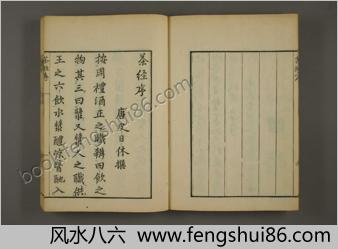 茶经序
唐皮日休撰
按周禮酒正之職辨四飲之
物其三曰漿又漿人之職供
王之六飲水漿醴涼醫酏入
bookfengshui86.com
风水八六 www.fengshui86.com